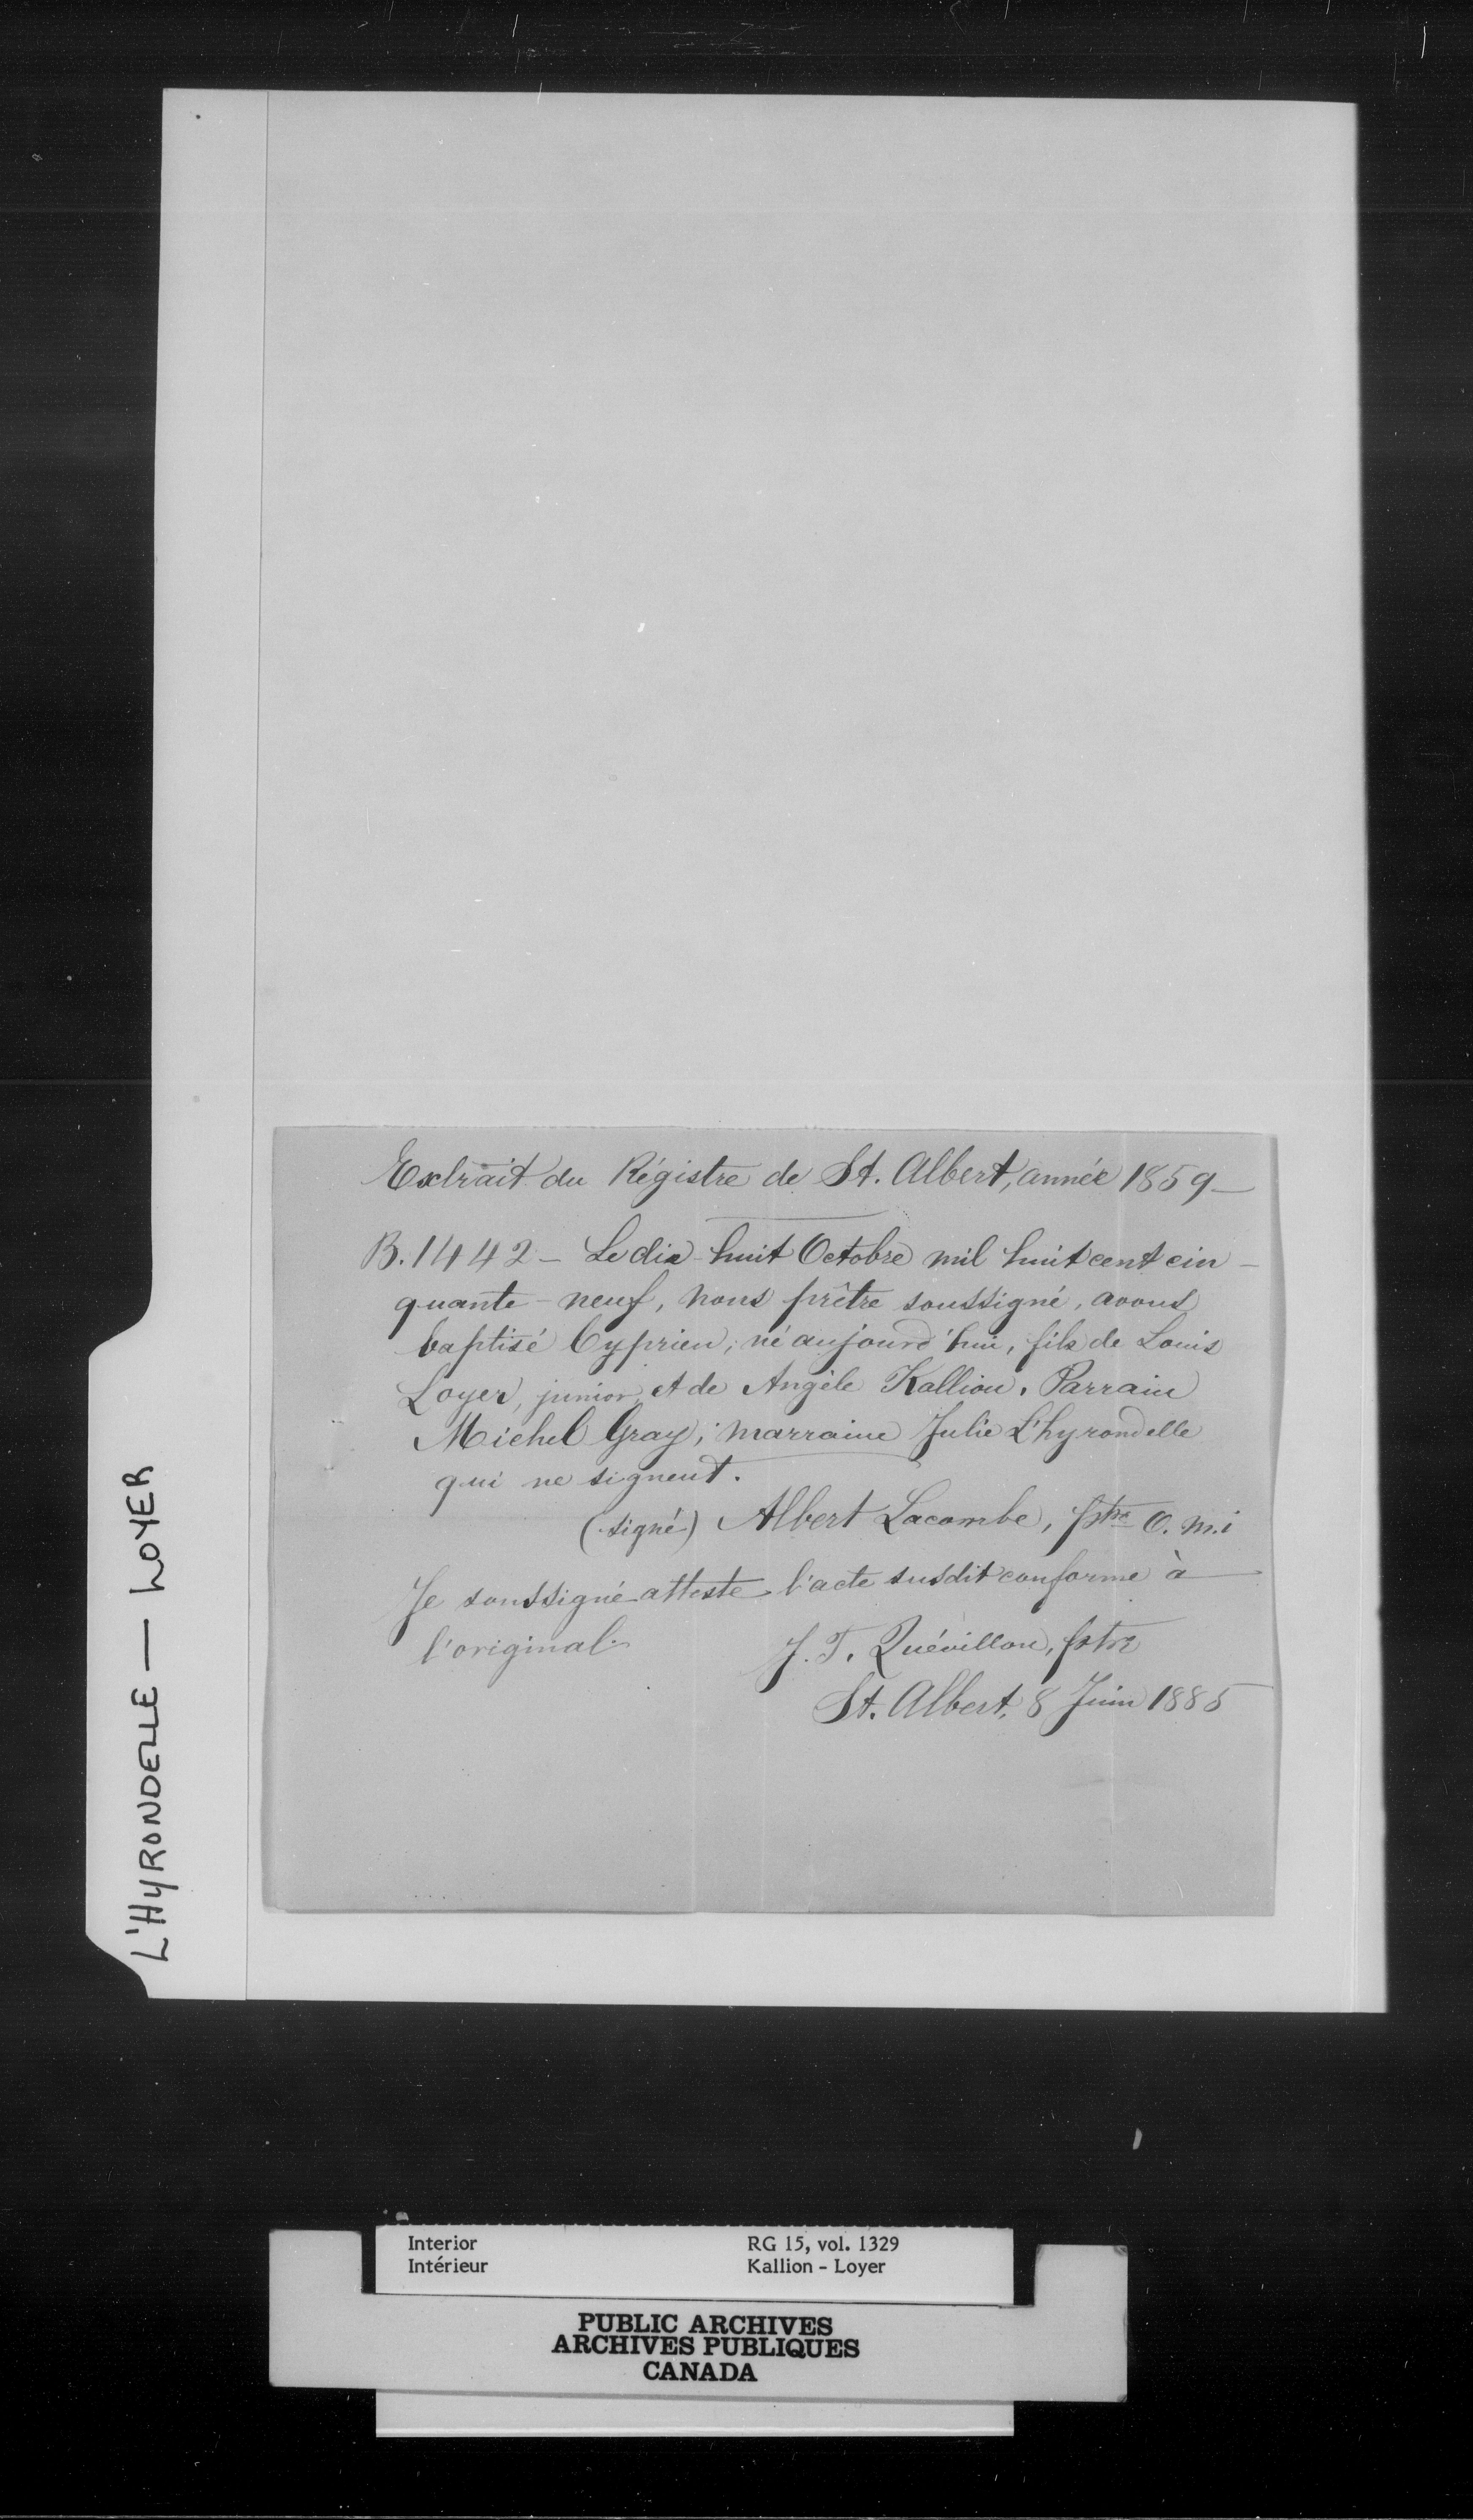 Extrait du Régistre de St. Albert, année 1859 —
B. 1442 — Le dix-huit Octobre mil huit cent cin-
quante-neuf, nous prêtre soussigné, avons
baptisé Cyprien, né aujourd'hui, fils de Louis
Loyer, junior, et de Angèle Kalliou. Parrain
Michel Gray; marraine Julie L'hyrondelle
qui ne signent.
(signé) Albert Lacombe, ptre O. m. i
Je soussigné atteste l'acte susdit conforme à
l'original.
J. T. Quévillon, ptre
St. Albert, 8 Juin 1885
L'HYRONDELLE — LOYER
Interior RG 15, vol. 1329
Intérieur Kallion - Loyer
PUBLIC ARCHIVES
ARCHIVES PUBLIQUES
CANADA